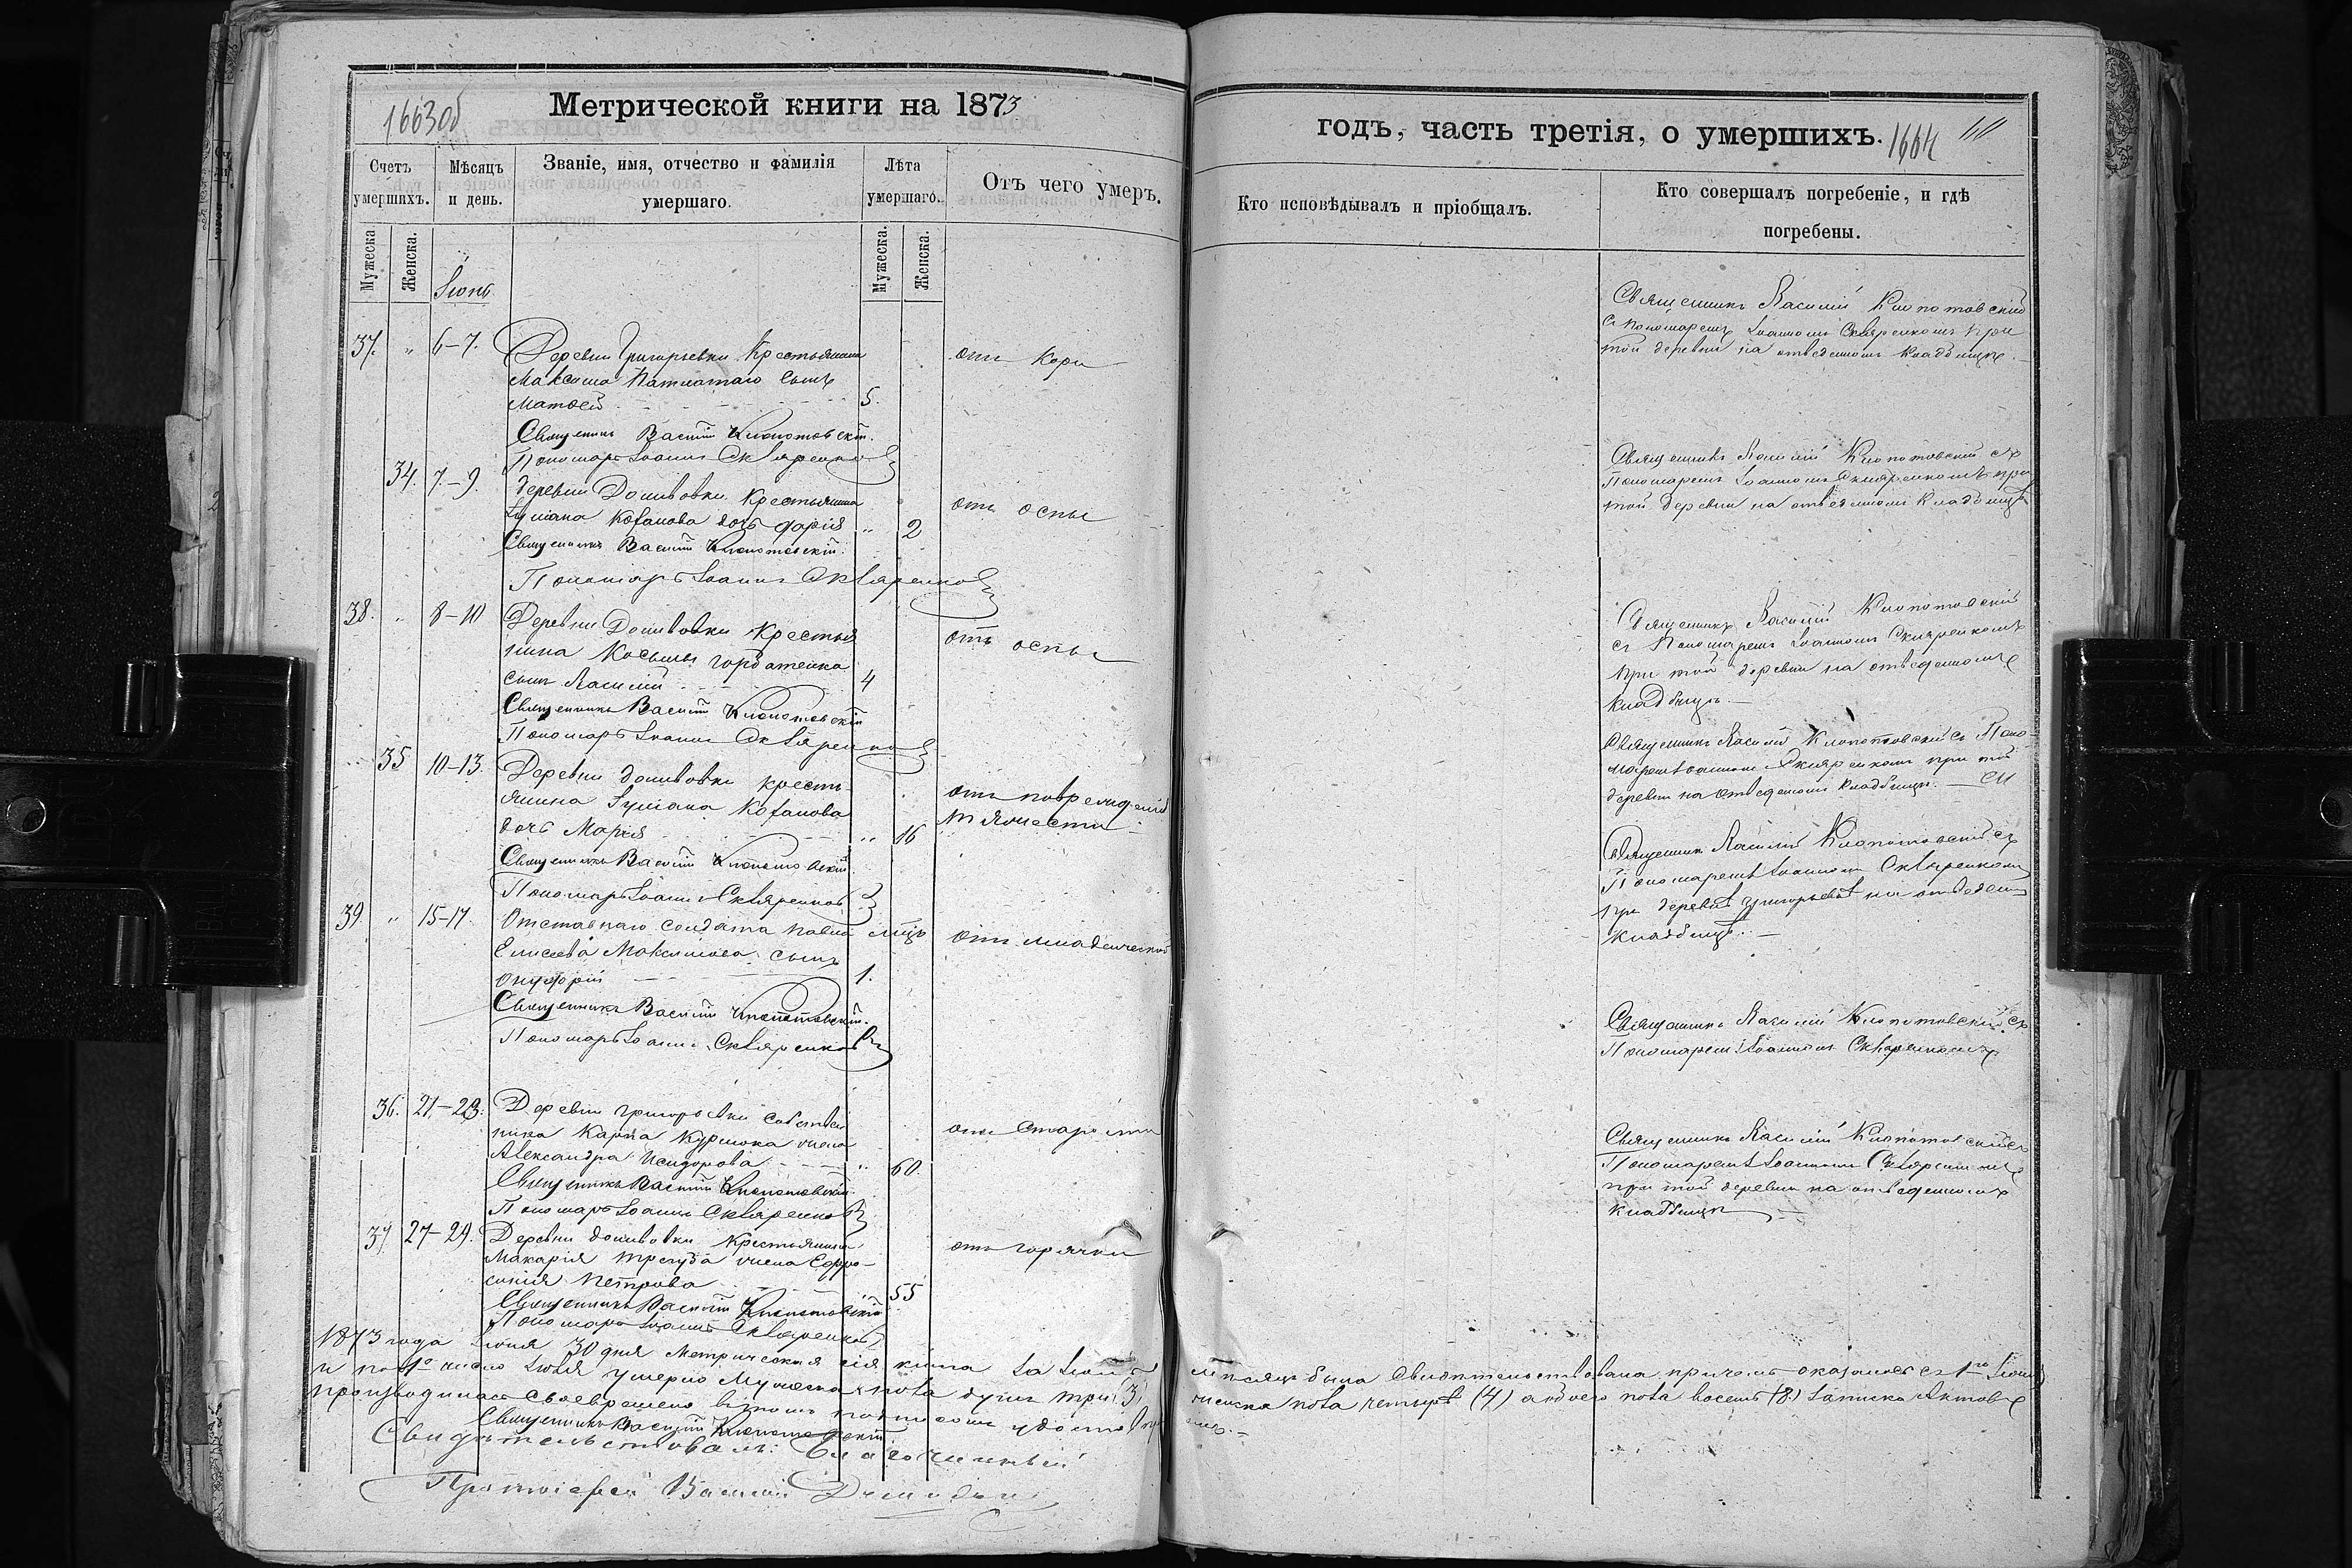 1663об
Метрической книги на 1873
Счетъ умершихъ.
Мѣсяцъ и день.
Званіе, имя, отчество и фамилія умершаго.
Лѣта умершаго.
Отъ чего умеръ.
Мужеска.
Женска.
Мужеска.
Женска.
Іюнь
37. " 6–7. Деревни Григорьевки Крестьянина
Максима Патлатаго сынъ
Матѳей 5. отъ Кори
Священникъ Василій Клопотовскій.
Пономарь Іоаннъ Скляренко
34. 7.–9. деревни Доливовки Крестьянина
Іуліана Козакова дочь Дарія " 2 отъ оспы
Священникъ Василій Клопотовскій.
Пономарь Іоаннъ Скляренко
38. " 8–10 Деревни Доливовки Крестья
нина Косьмы Горбатенка
сынъ Василій 4 отъ оспы
Священникъ Василій Клопотовскій
Пономарь Іоаннъ Скляренко
35 10–13. Деревни Доливовки крестъ
янина Іуліана Козакова
дочь Марія " 16 отъ поврежденія
тяжести
Священникъ Василій Клопотовскій
Пономарь Іоаннъ Скляренко
39. " 15–17. Отставнаго солдата Павла
Елисеева Максимова сынъ
Онуфрій 1. отъ младенческой
Священникъ Василій Клопотовскій.
Пономарь Іоаннъ Скляренко
36. 21–23. Деревни Григорьевки собствен
ника Карпа жена
Александра Исидорова " 60. отъ старости
Священникъ Василій Клопотовскій
Пономарь Іоаннъ Скляренко
37 27–29. Деревни Доливовки Крестьянина
Макарія жена Евфро-
синія Петрова 55 отъ горячки
Священникъ Василій Клопотовскій
Пономарь Іоаннъ Скляренко
1873 года Іюня 30 дня Метрическая сія книга за Іюнь
и по 1е число Іюля умерло Мужеска пола душъ три (3)
производилась своевременно въ томъ подписомъ
Священникъ Василій Клопотовскій
Свидѣтельствовалъ: Благочинный
Протоіерей Василій
годъ, часть третія, о умершихъ.
1664
Кто исповѣдывалъ и пріобщалъ.
Кто совершалъ погребеніе, и гдѣ погребены.
Священникъ Василій Клопотовскій
съ Пономаремъ Іоанномъ Скляренкомъ при
той деревни на отведенномъ кладбищѣ.
Священникъ Василій Клопотовскій съ
Пономаремъ Іоанномъ Скляренкомъ при
той деревни на отведенномъ кладбищѣ
Священникъ Василій Клопотовскій
съ Пономаремъ Іоанномъ Скляренкомъ
при той деревни на отведенномъ
кладбищѣ.–
Священникъ Василій Клопотовскій съ Поно-
маремъ Іоанномъ Скляренкомъ при той
деревни на отведенномъ кладбищѣ.
Священникъ Василій Клопотовскій съ
Пономаремъ Іоанномъ Скляренкомъ
при деревнѣ Григорьевкѣ на отведенн
кладбищѣ.–
Священникъ Василій Клопотовскій съ
Пономаремъ Іоанномъ Скляренкомъ
Священникъ Василій Клопотовскій съ
Пономаремъ Іоанномъ Скляренкомъ
при той деревни на отведенномъ
кладбищѣ
мѣсяцъ была свидѣтельствована причемъ оказалось съ 1го Іюня
женска пола четыре (4) а обоего пола восемь (8) записка актовъ